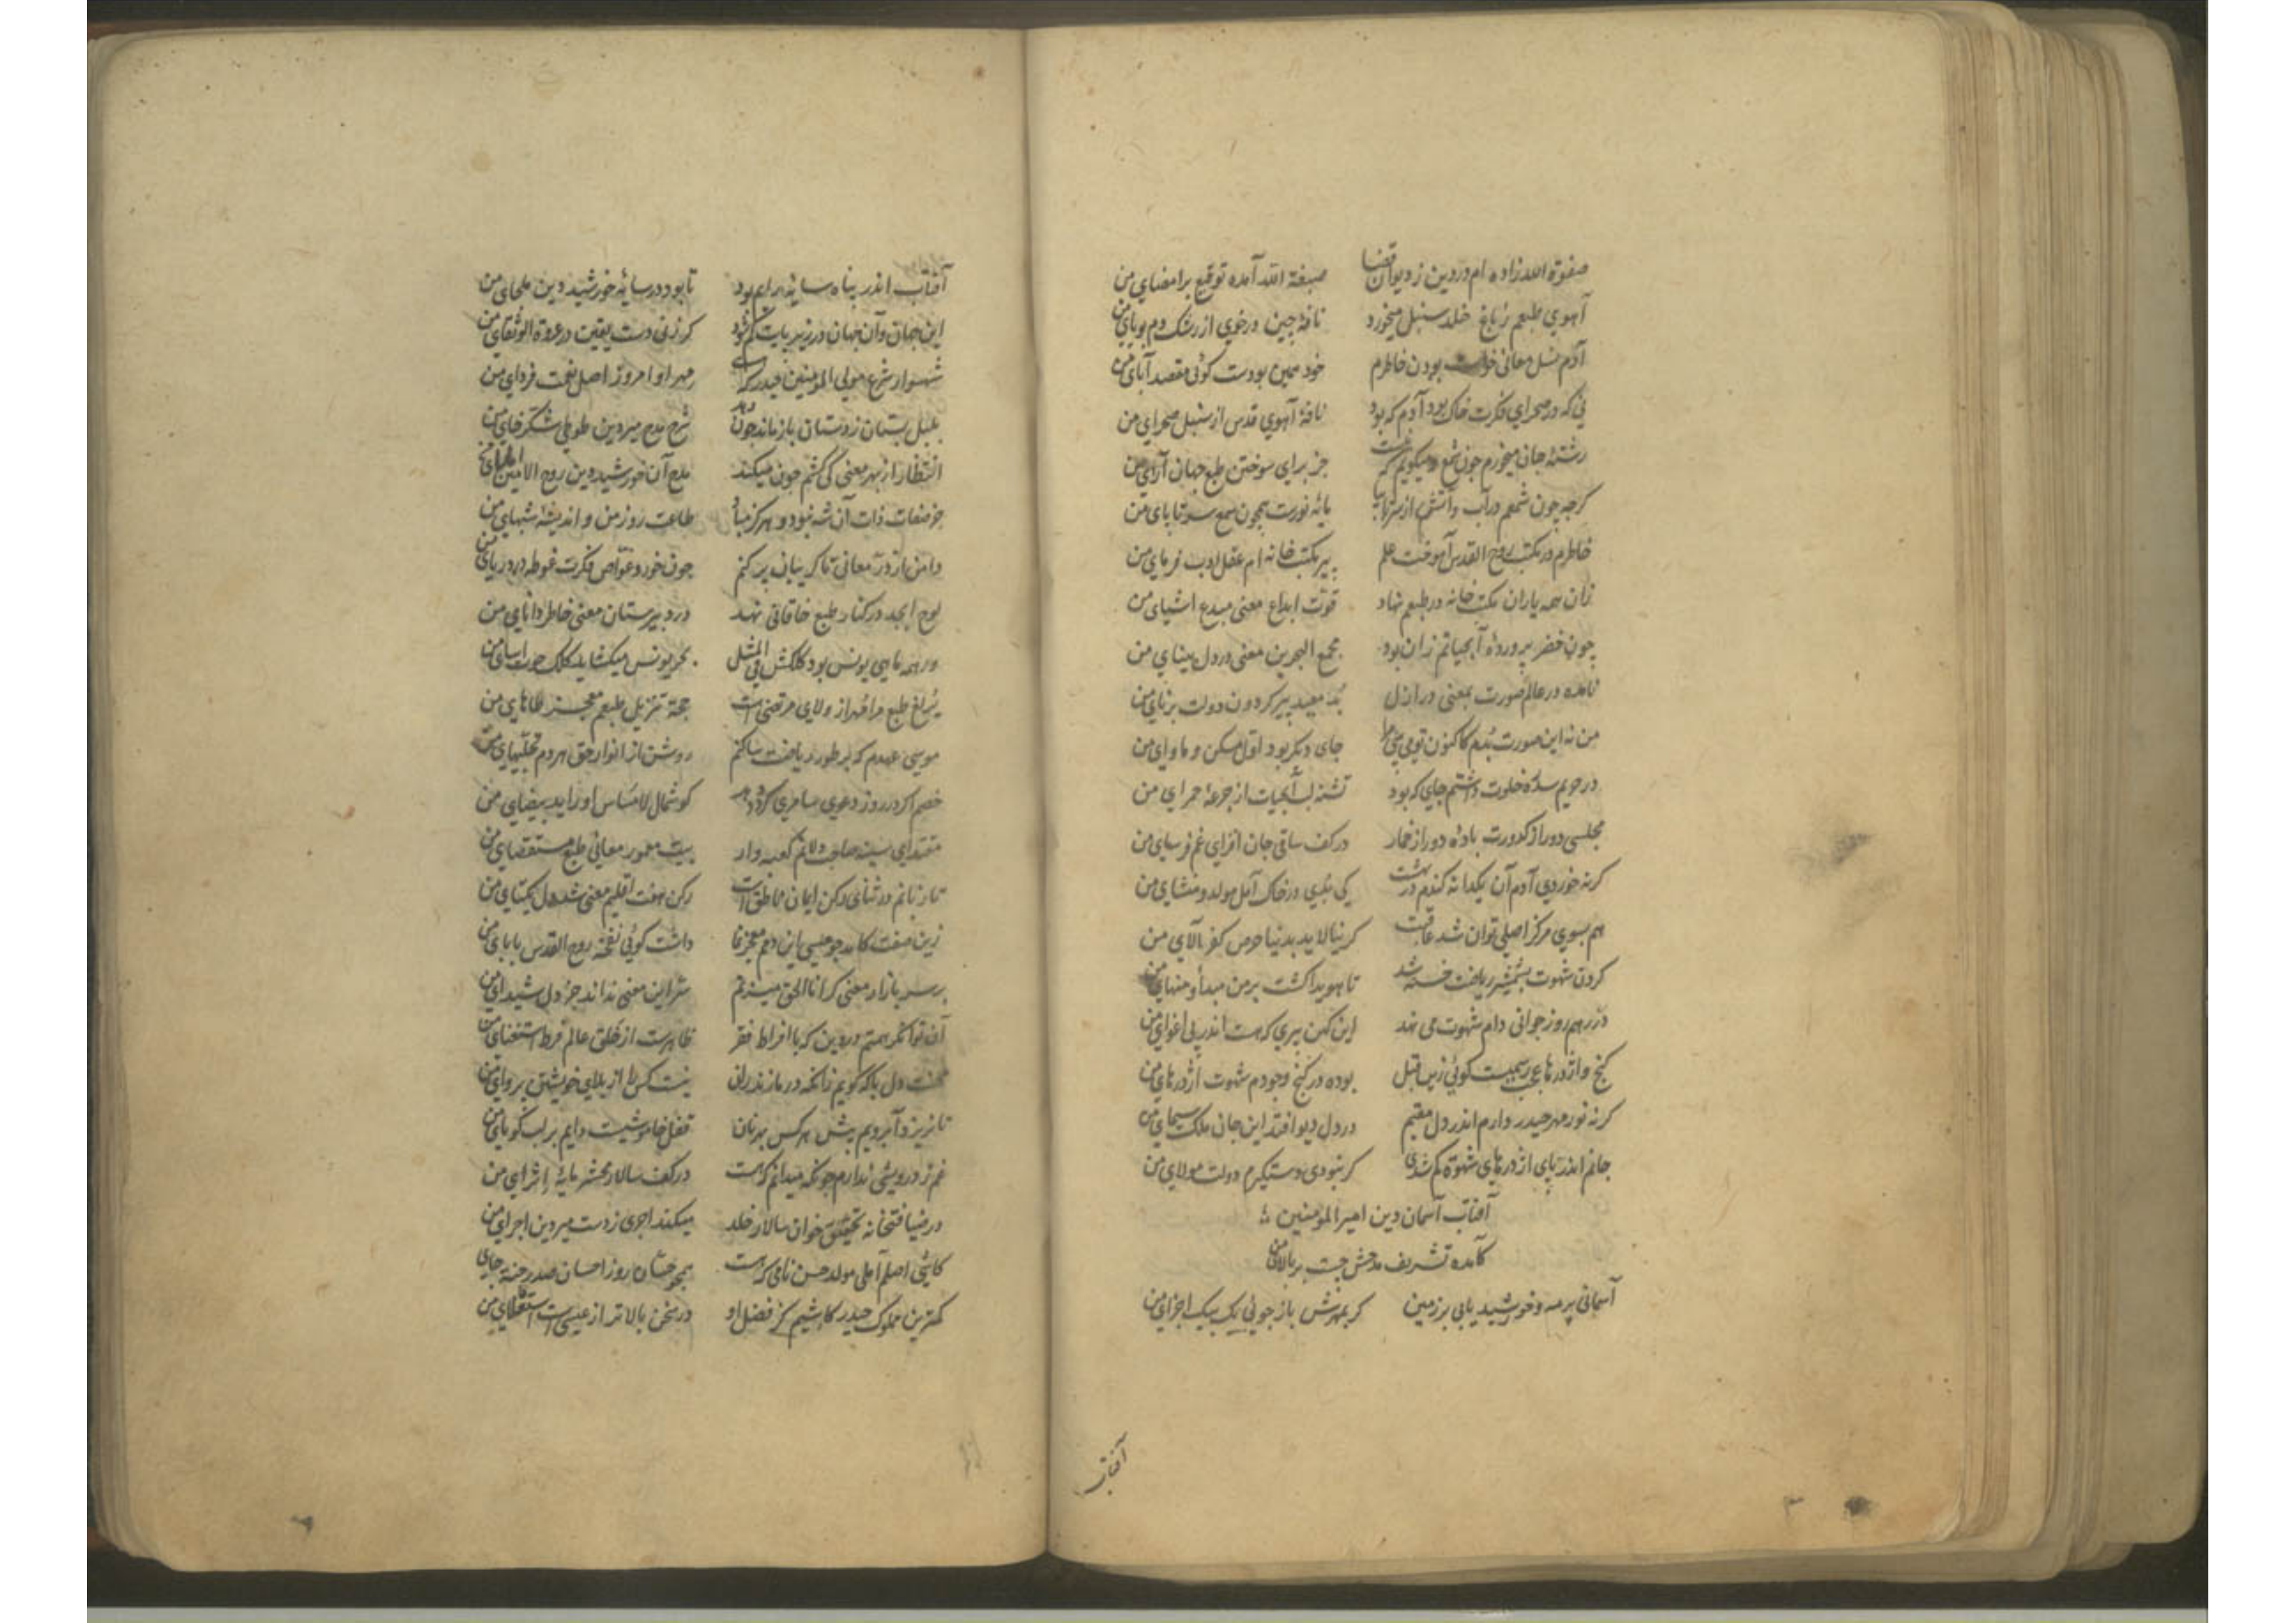 صفوة الله زاده ام در دین ز دیوان قضا صبغة الله آمده توقیع بر امضای من
آهوی طبعم ز باغ خلد سنبل میخورد نافهٔ چین در خوی از رشک دم بویای من
آدم نسل معانی خواست بودن خاطرم خود همین بودست کوئی مقصد آبای من
نی که در صحرای فکرت خاک بود آدم که بود نافهٔ آهوی قدس از سنبل صحرای من
رشتهٔ جان میخورم چون شمع و میکویم که جز برای سوختن طبع جهان آرای من
کرچه چون شمعم در آب و آتش از سر تا بپا مایهٔ نورست همچون شمع سر تا پای من
خاطرم در مکتب روح القدس آموخت علم پیر مکتب خانه ام عقل ادب فرمای من
زان همه یاران مکتب خانه در طبعم نهاد قوت ابداع معنی مبدع اشیای من
چون خضر پروردهٔ آبحیاتم زان بود مجمع البحرین معنی در دل بینای من
نامده در عالم صورت بمعنی در ازل بد معید پیر کردون دولت برنای من
من نه این صورت بدم کاکنون تو می بینی مرا جای دیکر بود اول مسکن و ماوای من
در حریم سدهٔ خلوت داشتم جای که بود تشنه لب آبحیات از جرعهٔ حمرای من
مجلسی دور از کدورت بادهٔ دور از خمار در کف ساقی جان افزای غم فرسای من
کرنه خوردی آدم آن یکدانه کندم در بهشت کی بدی در خاک آمل مولد و منشای من
هم بسوی مرکز اصلی توان شد عاقبت کر نیالاید بدنیا حرص کفر آلای من
کردن شهوت بشمشیر ریاضت خسته شد تا هویدا کشت بر من مبدأ و منهای من
در رهم روز جوانی دام شهوت می نهد این کهن پیری که هست اندر پی اغوای من
کنج و اژدرها عجب رسمیست کوئی زین قبل بوده در کنج وجودم شهوت اژدرهای من
کرنه نور مهر حیدر دارم اندر دل مقیم در دل دیو افتد این جان ملک سیمای من
جانم اندر پای اژدرهای شهوة کم شدی کر نبودی دستکیرم دولت مولای من
آفتاب آسمان دین امیرالمؤمنین
کآمده تشریف مدحش چست بر بالای من
آسمانی پر مه و خورشید یابی بر زمین کر بمهرش باز جوئی یک بیک اجزای من
آفتاب
آفتاب اندر پناه سایهٔ رایم بود تا بود در سایهٔ خورشید دین ملجای من
این جهان و آن جهان در زیر پایت کم شود کر زنی دست یقین در عروة الوثقای من
شهسوار شرع مولی المؤمنین حیدر که هست مهر او امروز اصل نعمت فردای من
بلبل بستان ز دستان باز ماند چون دهد شرح مدح میر دین طوطی شکرخای من
انتظار از بهر معنی کی کشم چون میکند مدح آن خورشید دین روح الامین املای من
جز صفات ذات آن شه نبود و هرکز مباد طاعت روز من و اندیشهٔ شبهای من
دامن از در معانی تا کریبان پر کنم چون خورد غواص فکرت غوطه در دریای من
لوح ابجد در کنار طبع خاقانی نهد در دبیرستان معنی خاطر دانای من
ورهمه ماهی یونس بود کلکش فی المثل بحر یونس میکشاید کلک حوت آسای من
یرلغ طبع مرا مهر از ولای مرتضی است حجة تنزیل طبعم معجز طاهای من
موسی عهدم که بر طور ریاضت ساکنم روشن از انوار حق هردم تجلیهای من
خصم اکر در روز دعوی سامری کردد دهد کوشمال لامساس او را ید بیضای من
مقتدای سینه صاحب دلانم کعبه وار بیت معمور معانی طبع مستقصای من
تا زبانم در ثنای رکن ایمان ناطق است رکن هفت اقلیم معنی شد دل یکتای من
زین صفت کامد چو عیسی این دم معجز نما داشت کوئی نفخهٔ روح القدس بابای من
بر سر بازار معنی کر انا الحق میزنم سر این معنی نداند جز دل شیدای من
آن توانکر همتم در دین که با افراط فقر ظاهرست از خلق عالم فرط استغنای من
محنت دل با که کویم زانکه در مازندران نیست کس را از بلای خویشتن پروای من
تا نریزد آبرویم پیش هر کس بهر نان قفل خاموشیست دایم بر لب کویای من
غم ز درویشی ندارم چونکه میدانم که هست در کف سالار محشر مایهٔ اثرای من
در ضیافتخانه تحقیق خوان سالار خلد میکند اجری ز دست میر دین اجرای من
کاشی اصلم آملی مولد حسن نامی که هست همچو حسان روز احسان صدر جنة جای من
کمترین مملوک حیدر کاشیم کز فضل او در سخن بالاتر از عیسی است استعلای من